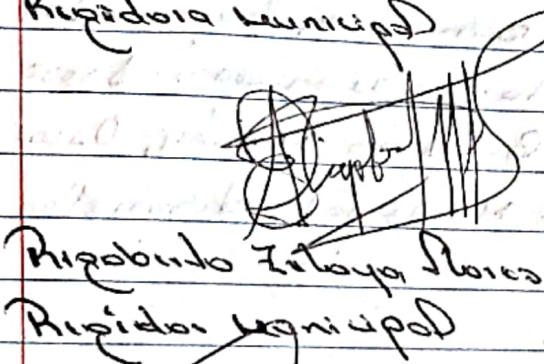 Regidora Municipal
Rigoberto Zelaya Flores
Regidor Municipal